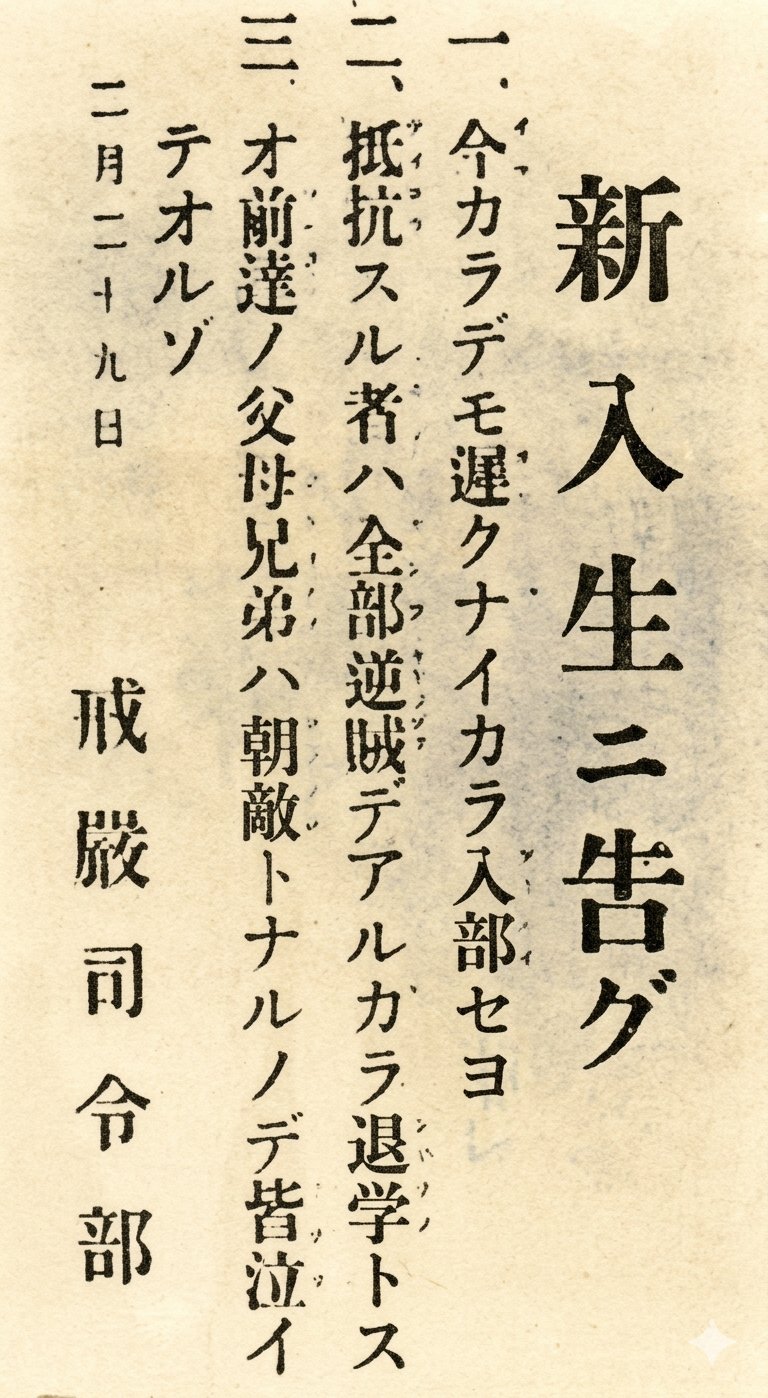 新入生ニ告グ
一、今カラデモ遅クナイカラ入部セヨ
二、抵抗スル者ハ全部逆賊デアルカラ退学トス
三、オ前達ノ父母兄弟ハ朝敵トナルノデ皆泣イ
テオルゾ
二月二十九日
戒厳司令部